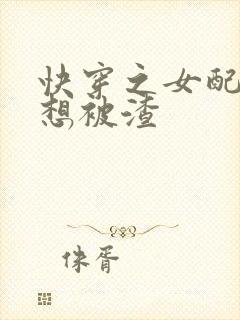 快穿之女配
想被渣
侏胥